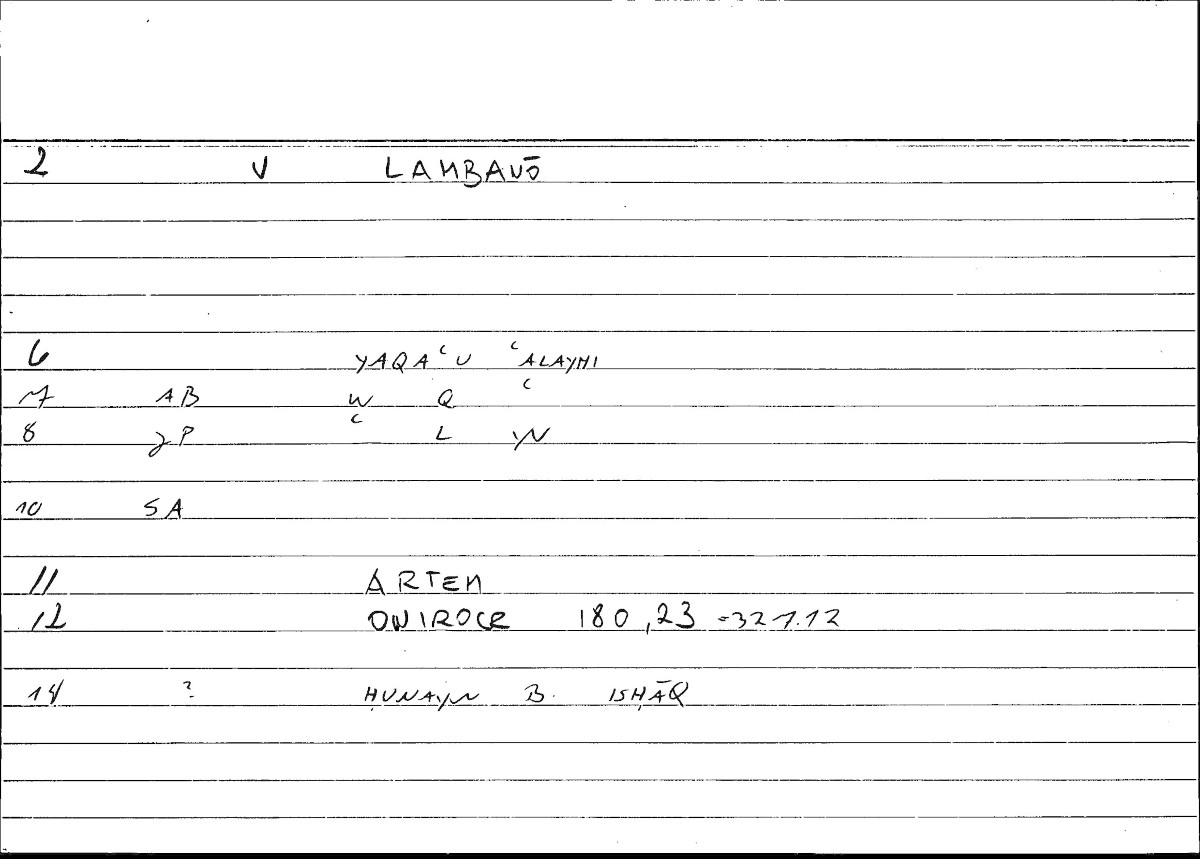 2 V LAMBANŌ
6 YAQAʿU ʿALAYHI
7 AB W Q ʿ
8 JP ʿ L YN
10 SA
11 ARTEM
12 ONIROCR 180,23 =327.12
14 ? ḤUNAYN B. ISḤĀQ